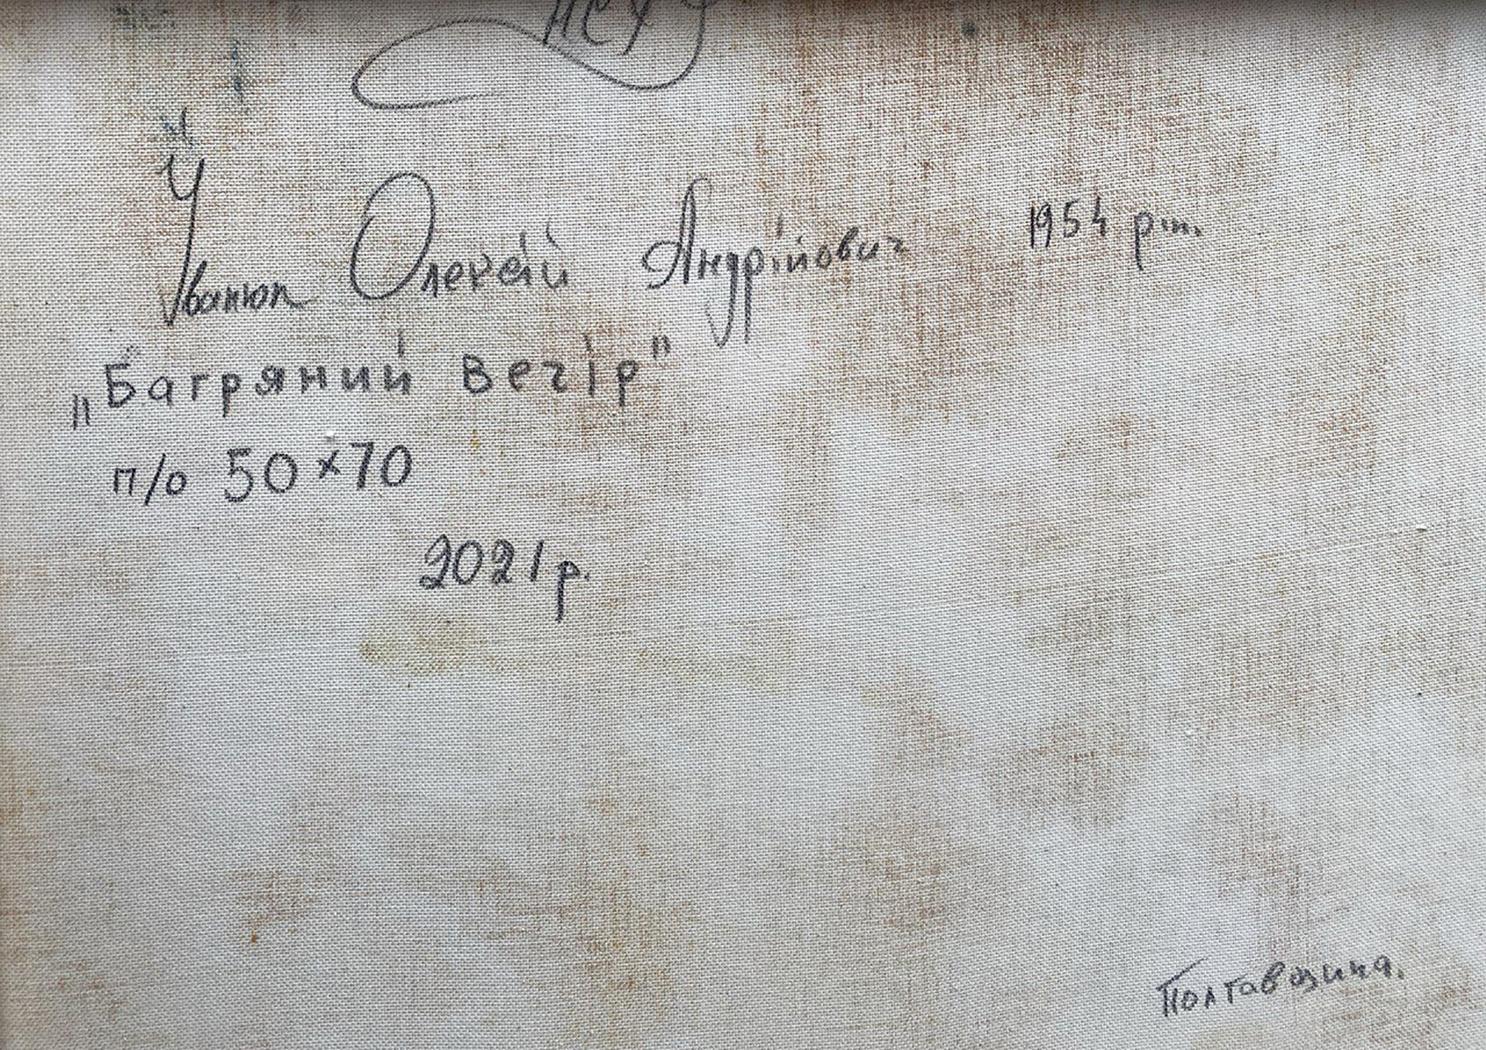 НСХУ
Іванюк Олексій Андрійович 1954 р.н.
„Багряний вечір"
п/о 50х70
2021р.
Полтавщина.